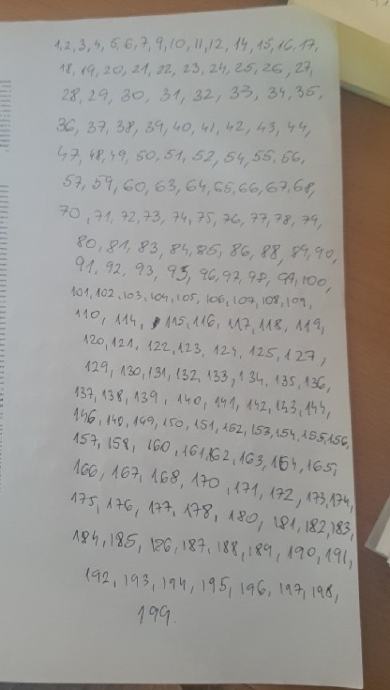 1, 2, 3, 4, 5, 6, 7, 9, 10, 11, 12, 14, 15, 16, 17,
18, 19, 20, 21, 22, 23, 24, 25, 26, 27,
28, 29, 30, 31, 32, 33, 34, 35,
36, 37, 38, 39, 40, 41, 42, 43, 44,
47, 48, 49, 50, 51, 52, 54, 55, 56,
57, 59, 60, 63, 64, 65, 66, 67, 68,
70, 71, 72, 73, 74, 75, 76, 77, 78, 79,
80, 81, 83, 84, 85, 86, 88, 89, 90,
91, 92, 93, 95, 96, 97, 98, 99, 100,
101, 102, 103, 104, 105, 106, 107, 108, 109,
110, 114, 115, 116, 117, 118, 119,
120, 121, 122, 123, 124, 125, 127,
129, 130, 131, 132, 133, 134, 135, 136,
137, 138, 139, 140, 141, 142, 143, 144,
146, 149, 150, 151, 152, 153, 154, 155, 156,
157, 158, 160, 161, 162, 163, 164, 165,
166, 167, 168, 170, 171, 172, 173, 174,
175, 176, 177, 178, 180, 181, 182, 183,
184, 185, 186, 187, 188, 189, 190, 191,
192, 193, 194, 195, 196, 197, 198,
199.